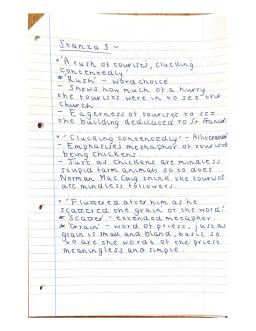 Stanza 3 ~
• 'A rush of tourists, clucking
contentedly'
* 'Rush' - word choice
- Shows how much of a hurry
the tourists were in to see the
church.
- Eagerness of tourists to see
the building dedicated to St Francis
• 'Clucking contentedly' - Alliteration
- Emphasises metaphor of tourists
being chickens.
- Just as chickens are mindless
stupid farm animals so to does
Norman MacCaig think the tourists
are mindless followers.
• 'Fluttered after him as he
scattered the grain of the word.'
* 'Scatter' - extended metaphor.
* 'Grain' - word of priest, just as
grain is small and bland, basic so
to are the words of the priest
meaningless and simple.